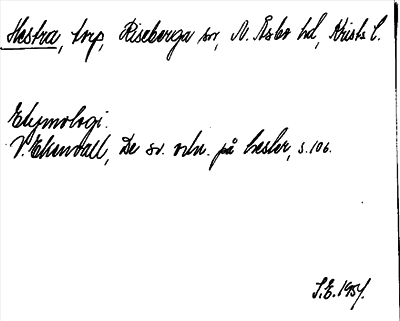 Hestra, trp, Riseberga sn, N. Åsbo hd, Krists l.
Etymologi.
V. Ekenvall, De sv. ortn. på hester, s. 106.
S.E. 1954.